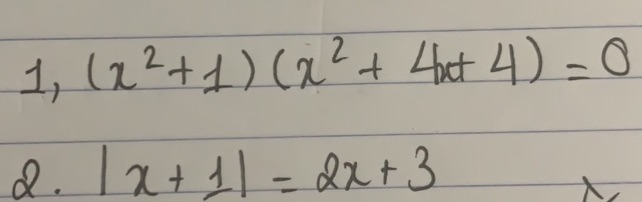 1, (x² + 1)(x² + 4x + 4) = 0
2. |x + 1| = 2x + 3